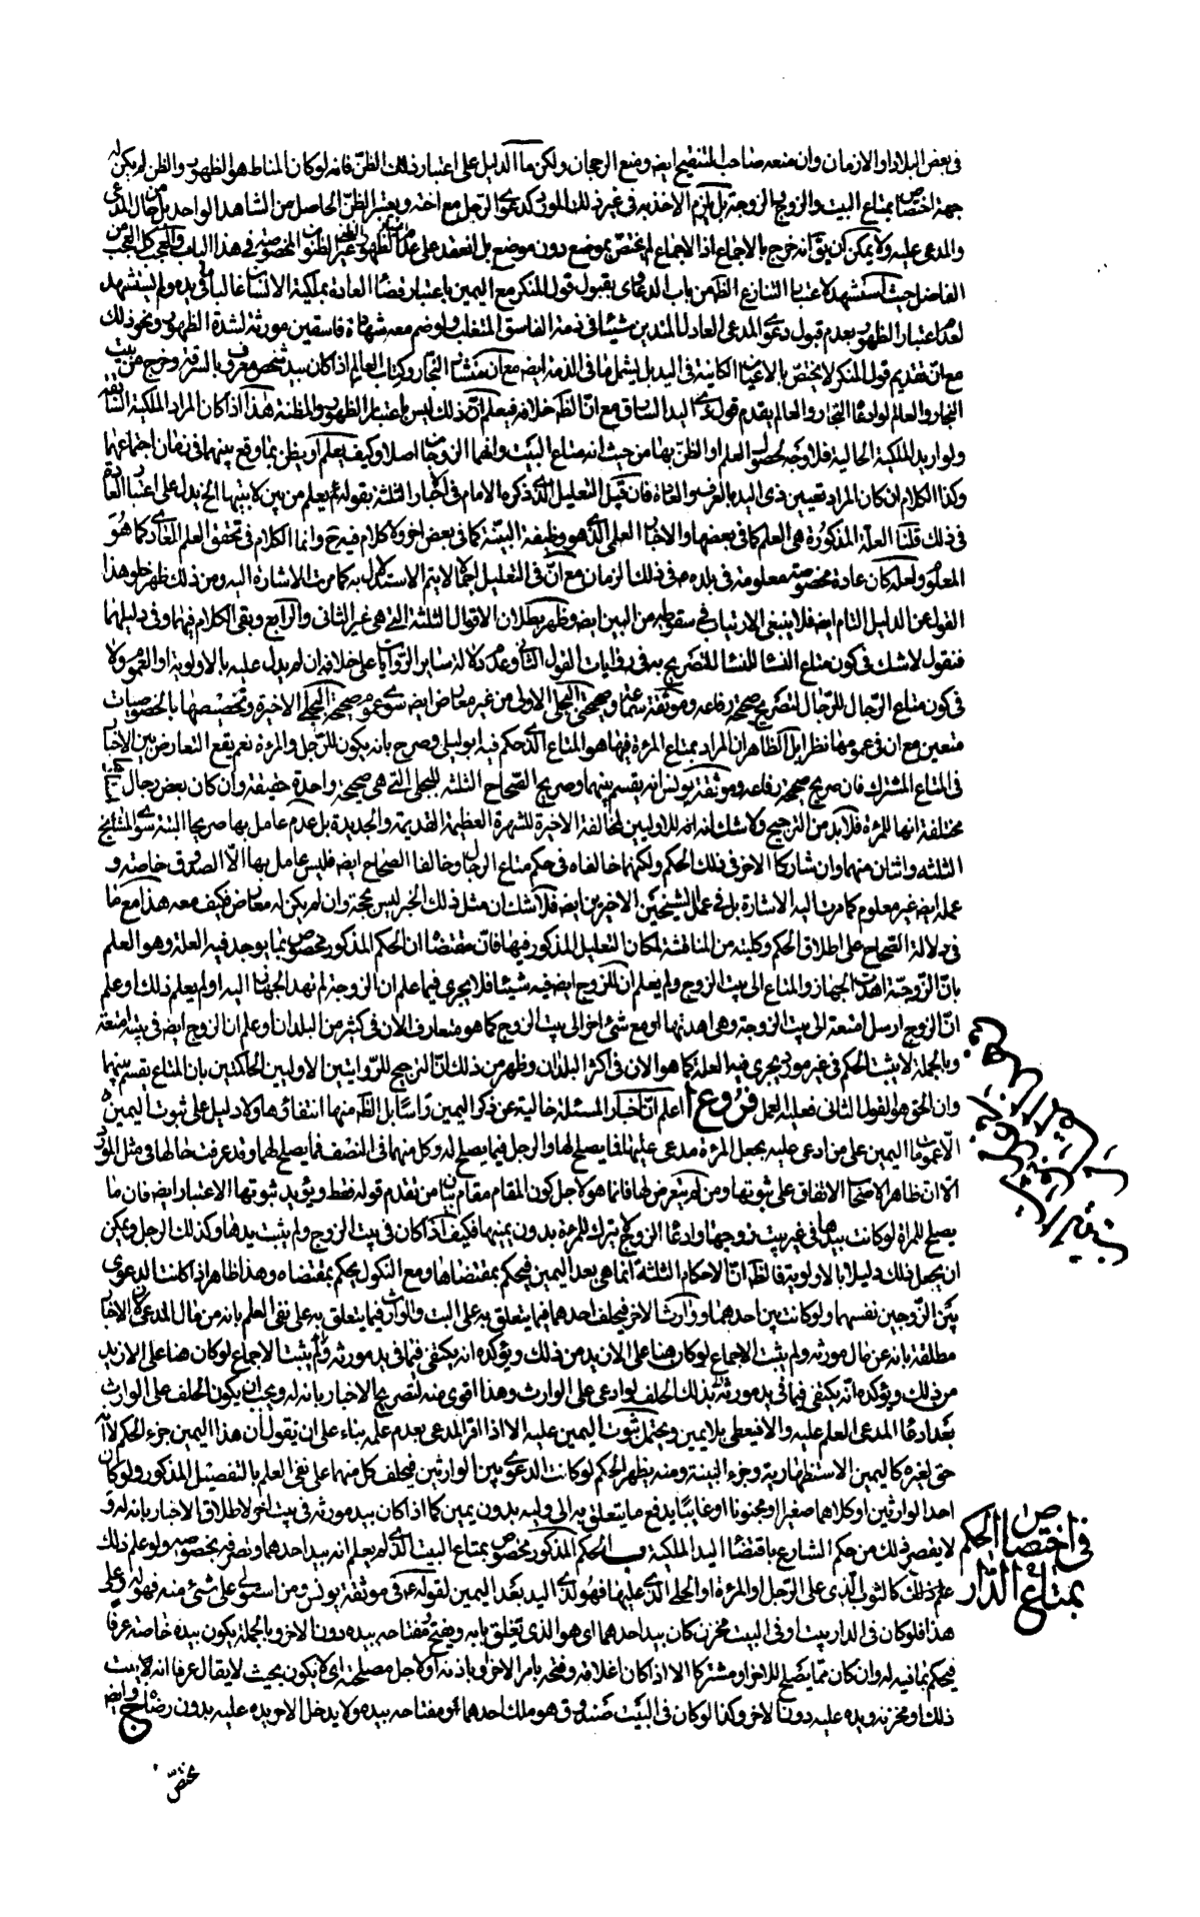 في بعض البلاد او الازمان وان منعه صاحب التنقيح ايضا ومنع الرجحان ولكن ما الدليل على اعتبار ذلك الظن فانه لو كان المناط هو الظهور والظن لم يكن له
جهة اختصاص بمتاع البيت والزوج والزوجة بل يلزم الاخذ به في غير ذلك المورد كدعوى الرجل مع اخته ويعتبر الظن الحاصل من الشاهد الواحد بل من حال المدعى
والمدعى عليه ولا يمكن ان يقال انه خرج بالاجماع اذ الاجماع لم يختص بموضع دون موضع بل انعقد على عدم اعتبار الظهور غير الظنون المخصوصة في هذا الباب والعجب كل العجب من
الفاضل حيث استشهد لاعتبار التنازع الظهر من باب الدعاوي بقبول قول المنكر مع اليمين باعتبار قضاء العادة بملكية الانسان غالبا لما في يده ولم يستشهد
لعدم اعتبار الظهور بعدم قبول دعوى المدعى العادل المتدين شيئا في ذمة الفاسق المتغلب ولو ضم معه شهادة فاسقين مورثة لشدة الظهور ونحو ذلك
مع ان تقديم قول المنكر لا يختص بالاعيان الكائنة في اليد بل يشمل ما في الذمة ايضا مع ان منشار النجار وكتاب العالم اذا كان بيد شخص معروف بالسرقة وخرج من بيت
النجار والعالم لو ادعاه النجار والعالم يقدم قول ذي اليد السارق مع ان الظهر خلافه فيعلم ان ذلك ليس باعتبار الظهور والمظنة هذا اذا كان المراد الملكية السابقة
ولو اريد الملكية الحالية فلا وجه لحصول العلم او الظن بها من حيث انه متاع البيت وانهما الزوجان اصلا وكيف يعلم او يظن بما وقع بينهما في زمان اجتماعهما
وكذا الكلام ان كان المراد تعيين ذي اليد بالعرف والعادة فان قيل التعليل الذي ذكره الامام في الاخبار الثلثة بقوله يعلم من بين لابتيها الخ يدل على اعتبار العادة
في ذلك قلنا العلة المذكورة هي العلم كما في بعضها والاخبار العلمي الذي هو وظيفة البينة كما في بعض اخر ولا كلام فيه ح وانما الكلام في تحقق العلم العادي كما هو
المعلوم ولعله كان عادة مخصوصة معلومة في بلده في ذلك الزمان مع ان في التعليل اجمالا لا يتم الاستدلال به كما مرت الاشارة اليه ومن ذلك ظهر خلو هذا
القول عن الدليل التام ايضا فلا ينبغي الارتياب في سقوطه من البين ايضا وظهر بطلان الاقوال الثلثة التي هي غير الثاني والرابع وبقي الكلام فيهما وفي دليلهما
فنقول لا شك في كون متاع النساء للنساء للتصريح به في روايات القول الثاني وعدم دلالة ساير الروايات على خلافه ان لم يدل عليه بالاولوية او العموم ولا
في كون متاع الرجال للرجال لتصريح صحيحة رفاعه وموثقة سماعة وصحيحتي البجلي الاولى من غير معارض ايضا سوى عموم صحيحة البجلي الاخيرة وتخصيصها بالخصوصيات
متعين مع ان في عمومها نظرا بل الظاهر ان المراد بمتاع المرءة فيها هو المتاع الذي حكم فيه ابو ليلى وصرح بانه يكون للرجل والمرءة نعم يقع التعارض بين الاخبار
في المتاع المشترك فان صريح صحيحة رفاعه وموثقة يونس انه يقسم بينهما وصريح الصحاح الثلثة للبجلي التي هي صحيحة واحدة حقيقة وان كان بعض رجال
مختلفة انها للمرءة فلا بد من الترجيح ولا شك انه للاوليين لمخالفة الاخيرة للشهرة العظيمة القديمة والجديدة بل عدم عامل بها صريحا البتة سوى المشايخ
الثلثة واثنان منهما وان شاركا الاخر في ذلك الحكم ولكنهما خالفاه في حكم متاع الرجال وخالفا الصحاح ايضا فليس عامل بها الا الصدوق خاصة و
عمله ايضا غير معلوم كما مرت اليه الاشارة بل في عمل الشيخين الاخرين ايضا فلا شك ان مثل ذلك الخبر ليس بحجة وان لم يكن له معارض فكيف معه هذا مع ما
في دلالة الصحاح على اطلاق الحكم وكليته من المناقشة لمكان التعليل المذكور فيها فان مقتضاه ان الحكم المذكور مخصوص بما يوجد فيه العلة وهو العلم
بان الزوجة اهدت الجهاز والمتاع الى بيت الزوج ولم يعلم ان للزوج ايضا فيه شيئا فلا يجري فيما علم ان الزوجة لم تهد الجهاز اليه او لم يعلم ذلك او علم
ان الزوج ارسل امتعة الى بيت الزوجة وهي اهدتها او مع شئ اخر الى بيت الزوج كما هو متعارف الان في كثير من البلدان او علم ان للزوج ايضا في بيته امتعة
وبالجملة لا يثبت الحكم في غير مورد يجري فيه العلة كما هو الان في اكثر البلدان وظهر من ذلك ان الترجيح للروايتين الاوليين الحاكمتين بان المتاع يقسم بينهما
وان الحق هو القول الثاني فعليه العمل فروع ا اعلم ان اخبار المسئلة خالية عن ذكر اليمين راسا بل الظهر منها انتفاؤها ولا دليل على ثبوت اليمين
الا عمومات اليمين على من ادعى عليه بجعل المرءة مدعى عليها فيما يصلح لها والرجل فيما يصلح له وكل منهما في النصف فيما يصلح لهما وقد عرفت حالها في مثل المورد
الا ان ظاهر الاصحاب الاتفاق على ثبوتها ومن لم يتعرض لها فانما هو لاجل كون المقام مقام بيان من تقدم قوله فقط ويؤيد ثبوتها الاعتبار ايضا فان ما
يصلح للمراة لو كانت بيدها في غير بيت زوجها وادعاه الزوج لا يترك للمرءة بدون يمينها فكيف اذا كان في بيت الزوج ولم يثبت يدها وكذلك الرجل ويمكن
ان يجعل ذلك دليلا بالاولوية فالظ ان الاحكام الثلثة انما هي بعد اليمين فيحكم بمقتضاها ومع النكول يحكم بمقتضاه وهذا ظاهر اذا كانت الدعوى
بين الزوجين نفسهما ولو كانت بين احدهما ووارث الاخر فيحلف احدهما فيما يتعلق به على البت والوارث فيما يتعلق به على نفي العلم بانه من مال المدعي لان الاخبار
مطلقة بانه عن مال مورثه ولم يثبت الاجماع لو كان هنا على الازيد من ذلك ويؤكده انه يكتفي فيما في يد مورثه ولم يثبت الاجماع لو كان هنا على الازيد
من ذلك ويؤكده انه يكتفي فيما في يد مورثه بذلك الحلف لو ادعى على الوارث وهذا اقوى منه لتصريح الاخبار بانه له ويجب ان يكون الحلف على الوارث
بعد ادعاء المدعى العلم عليه والا فيعطى بلا يمين ويحتمل ثبوت اليمين عليه الا اذا اقر المدعى بعدم علمه بناء على ان يقول ان هذا اليمين جزء الحكم لا انه
حق لغيره كاليمين الاستظهارية وجزء البينة ومنه يظهر الحكم لو كانت الدعوى بين الوارثين فيحلف كل منهما على نفي العلم بالتفصيل المذكور ولو كان
احد الوارثين او كلاهما صغيرا او مجنونا او غايبا يدفع ما يتعلق به الى وليه بدون يمين كما اذا كان بيد مورثه في بيت اخر لاطلاق الاخبار بانه له و
لا يقصر ذلك من حكم الشارع باقتضاء اليد الملكية ب الحكم المذكور مخصوص بمتاع البيت الذي لم يعلم انه بيد احدهما وتصرفه بخصوصه ولو علم ذلك
علم ذلك كالثوب الذي على الرجل او المرءة او الحلي الذي عليها فهو لذي اليد بعد اليمين لقوله ع في موثقة يونس ومن استولى على شئ منه فهو له وعلى
هذا فلو كان في الدار بيت او في البيت مخزن كان بيد احدهما اي هو الذي تغلق بابه ويفتح ومفتاحه بيده دون الاخر وبالجملة يكون بيده خاصة عرفا
فيحكم بما فيه له وان كان مما يصلح للاخر او مشتركا الا اذا كان اغلاقه وفتحه بامر الاخر او باذنه او لاجل مصلحته اي لا يكون بحيث لا يقال عرفا انه لا بيت
ذلك او مخزنه ويده عليه دون الاخر وكذا لو كان في البيت صندوق هو ملك احدهما او مفتاحه بيده ولا يدخل الاخر يده عليه بدون رضاه ج وايضا
يختص
في اختصاص الحكم
بمتاع الدار